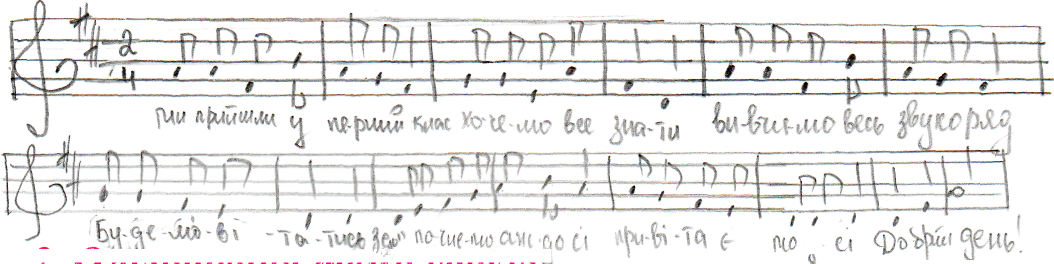 2
4
ми прийшли у пе-рший клас хо-че-мо все зна-ти ви-вчи-мо весь звукоряд
Бу-де-мо-ві-та-тись по-чне-мо до сі при-ві-та є сі Добрий день!